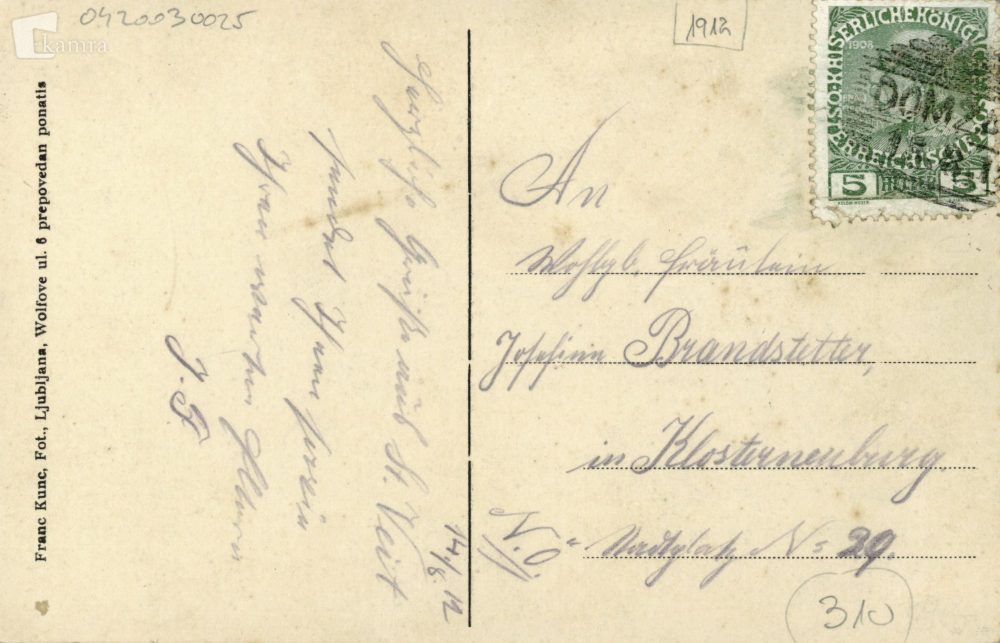 0420030025
kamra
1912
KAISERLICHE KÖNIGLICHE
1908
DOM
5 HELLER 5
Franc Kunc, Fot., Ljubljana, Wolfove ul. 6 prepovedan ponatis
14/8. 12
Herzliche Grüße aus St. Veit
sendet Ihnen sowie
Ihren werten Eltern
J. F.
An
Wohlgb. Fräulein
Josefine Brandstetter,
in Klosterneuburg.
N.Ö. Stadtplatz No 29.
310